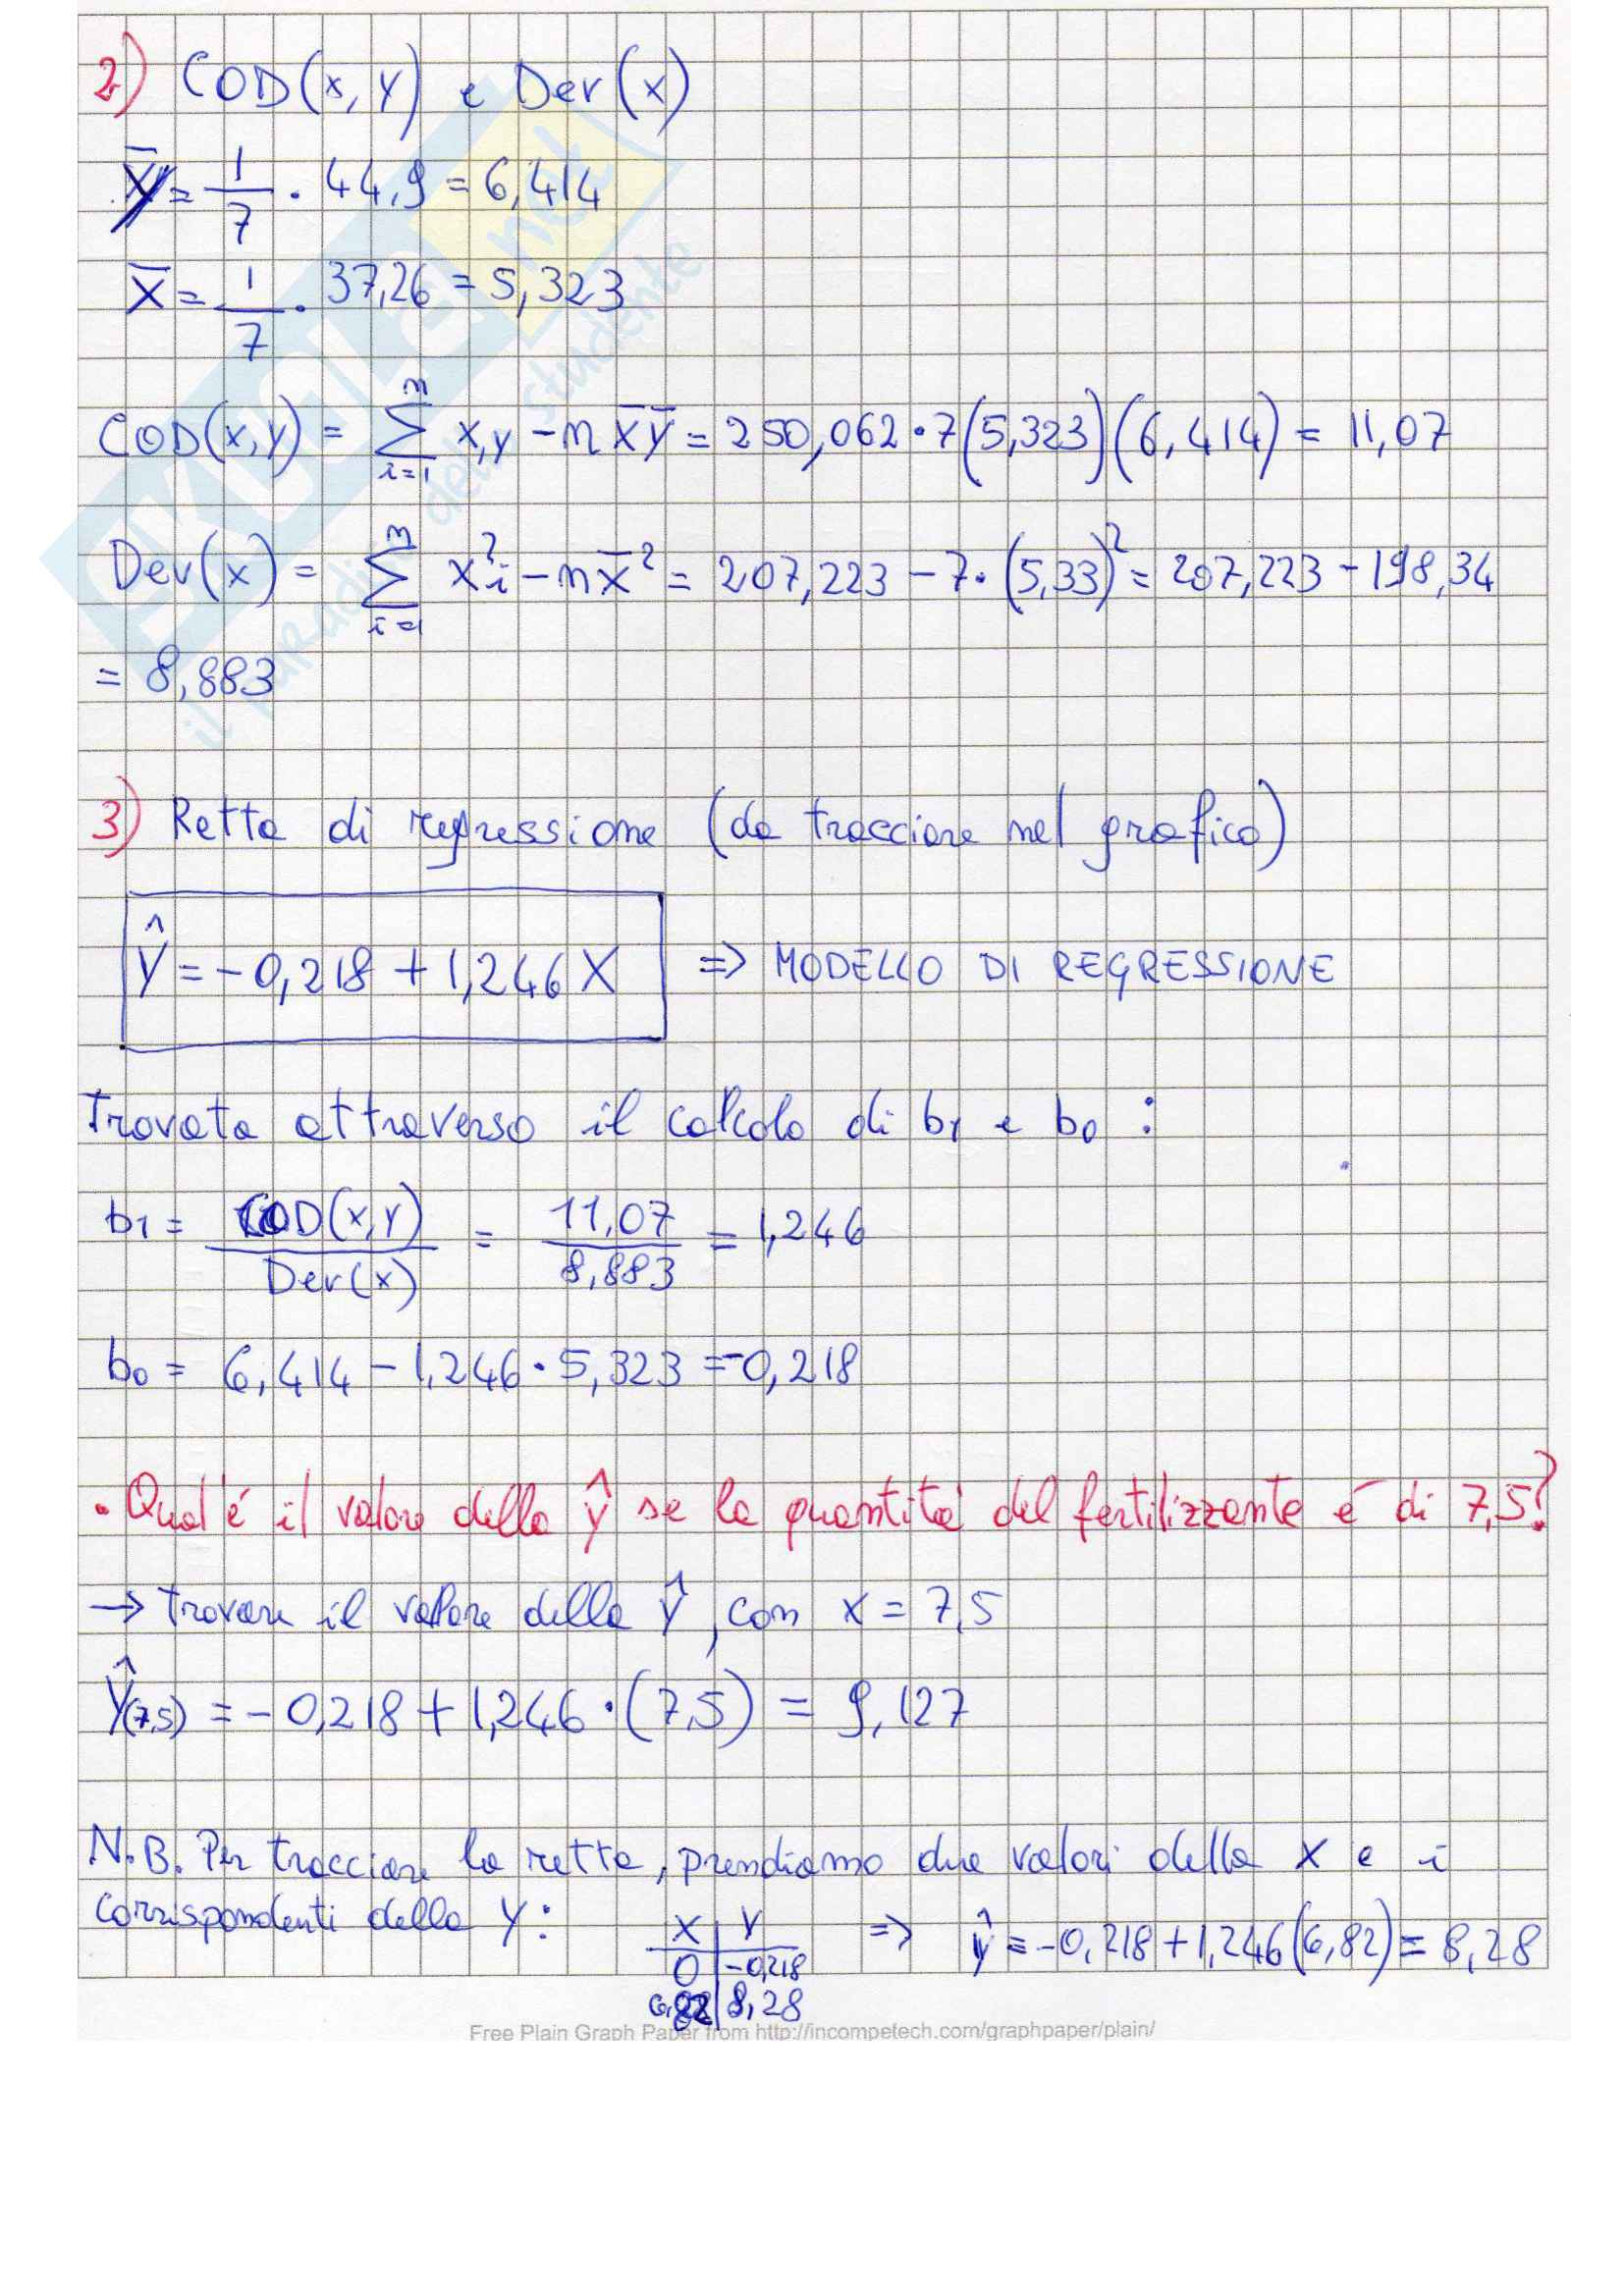 2) COD(x,y) e Dev(x)
Y̅ = 1/7 · 44,9 = 6,414
X̅ = 1/7 · 37,26 = 5,323
COD(x,y) = Σ_{i=1}^{n} x,y - n X̅ Y̅ = 250,062 · 7(5,323)(6,414) = 11,07
Dev(x) = Σ_{i=1}^{n} x²i - n x̅² = 207,223 - 7·(5,33)² = 207,223 - 198,34
= 8,883
3) Retta di regressione (da tracciare nel grafico)
Ŷ = -0,218 + 1,246 X => MODELLO DI REGRESSIONE
Trovata attraverso il calcolo di b1 e b0 :
b1 = COD(x,y)/Dev(x) = 11,07/8,883 = 1,246
b0 = 6,414 - 1,246 · 5,323 = -0,218
• Qual é il valore della ŷ se la quantità del fertilizzante é di 7,5?
→ trovare il valore della Ŷ, con x = 7,5
Ŷ(7,5) = -0,218 + 1,246 · (7,5) = 9,127
N.B. Per tracciare la retta, prendiamo due valori della X e i
corrispondenti della Y :
X | Y => ŷ = -0,218 + 1,246(6,82) = 8,28
0 | -0,218
6,82 | 8,28
Free Plain Graph Paper from http://incompetech.com/graphpaper/plain/
skuola.net
il paradiso dello studente